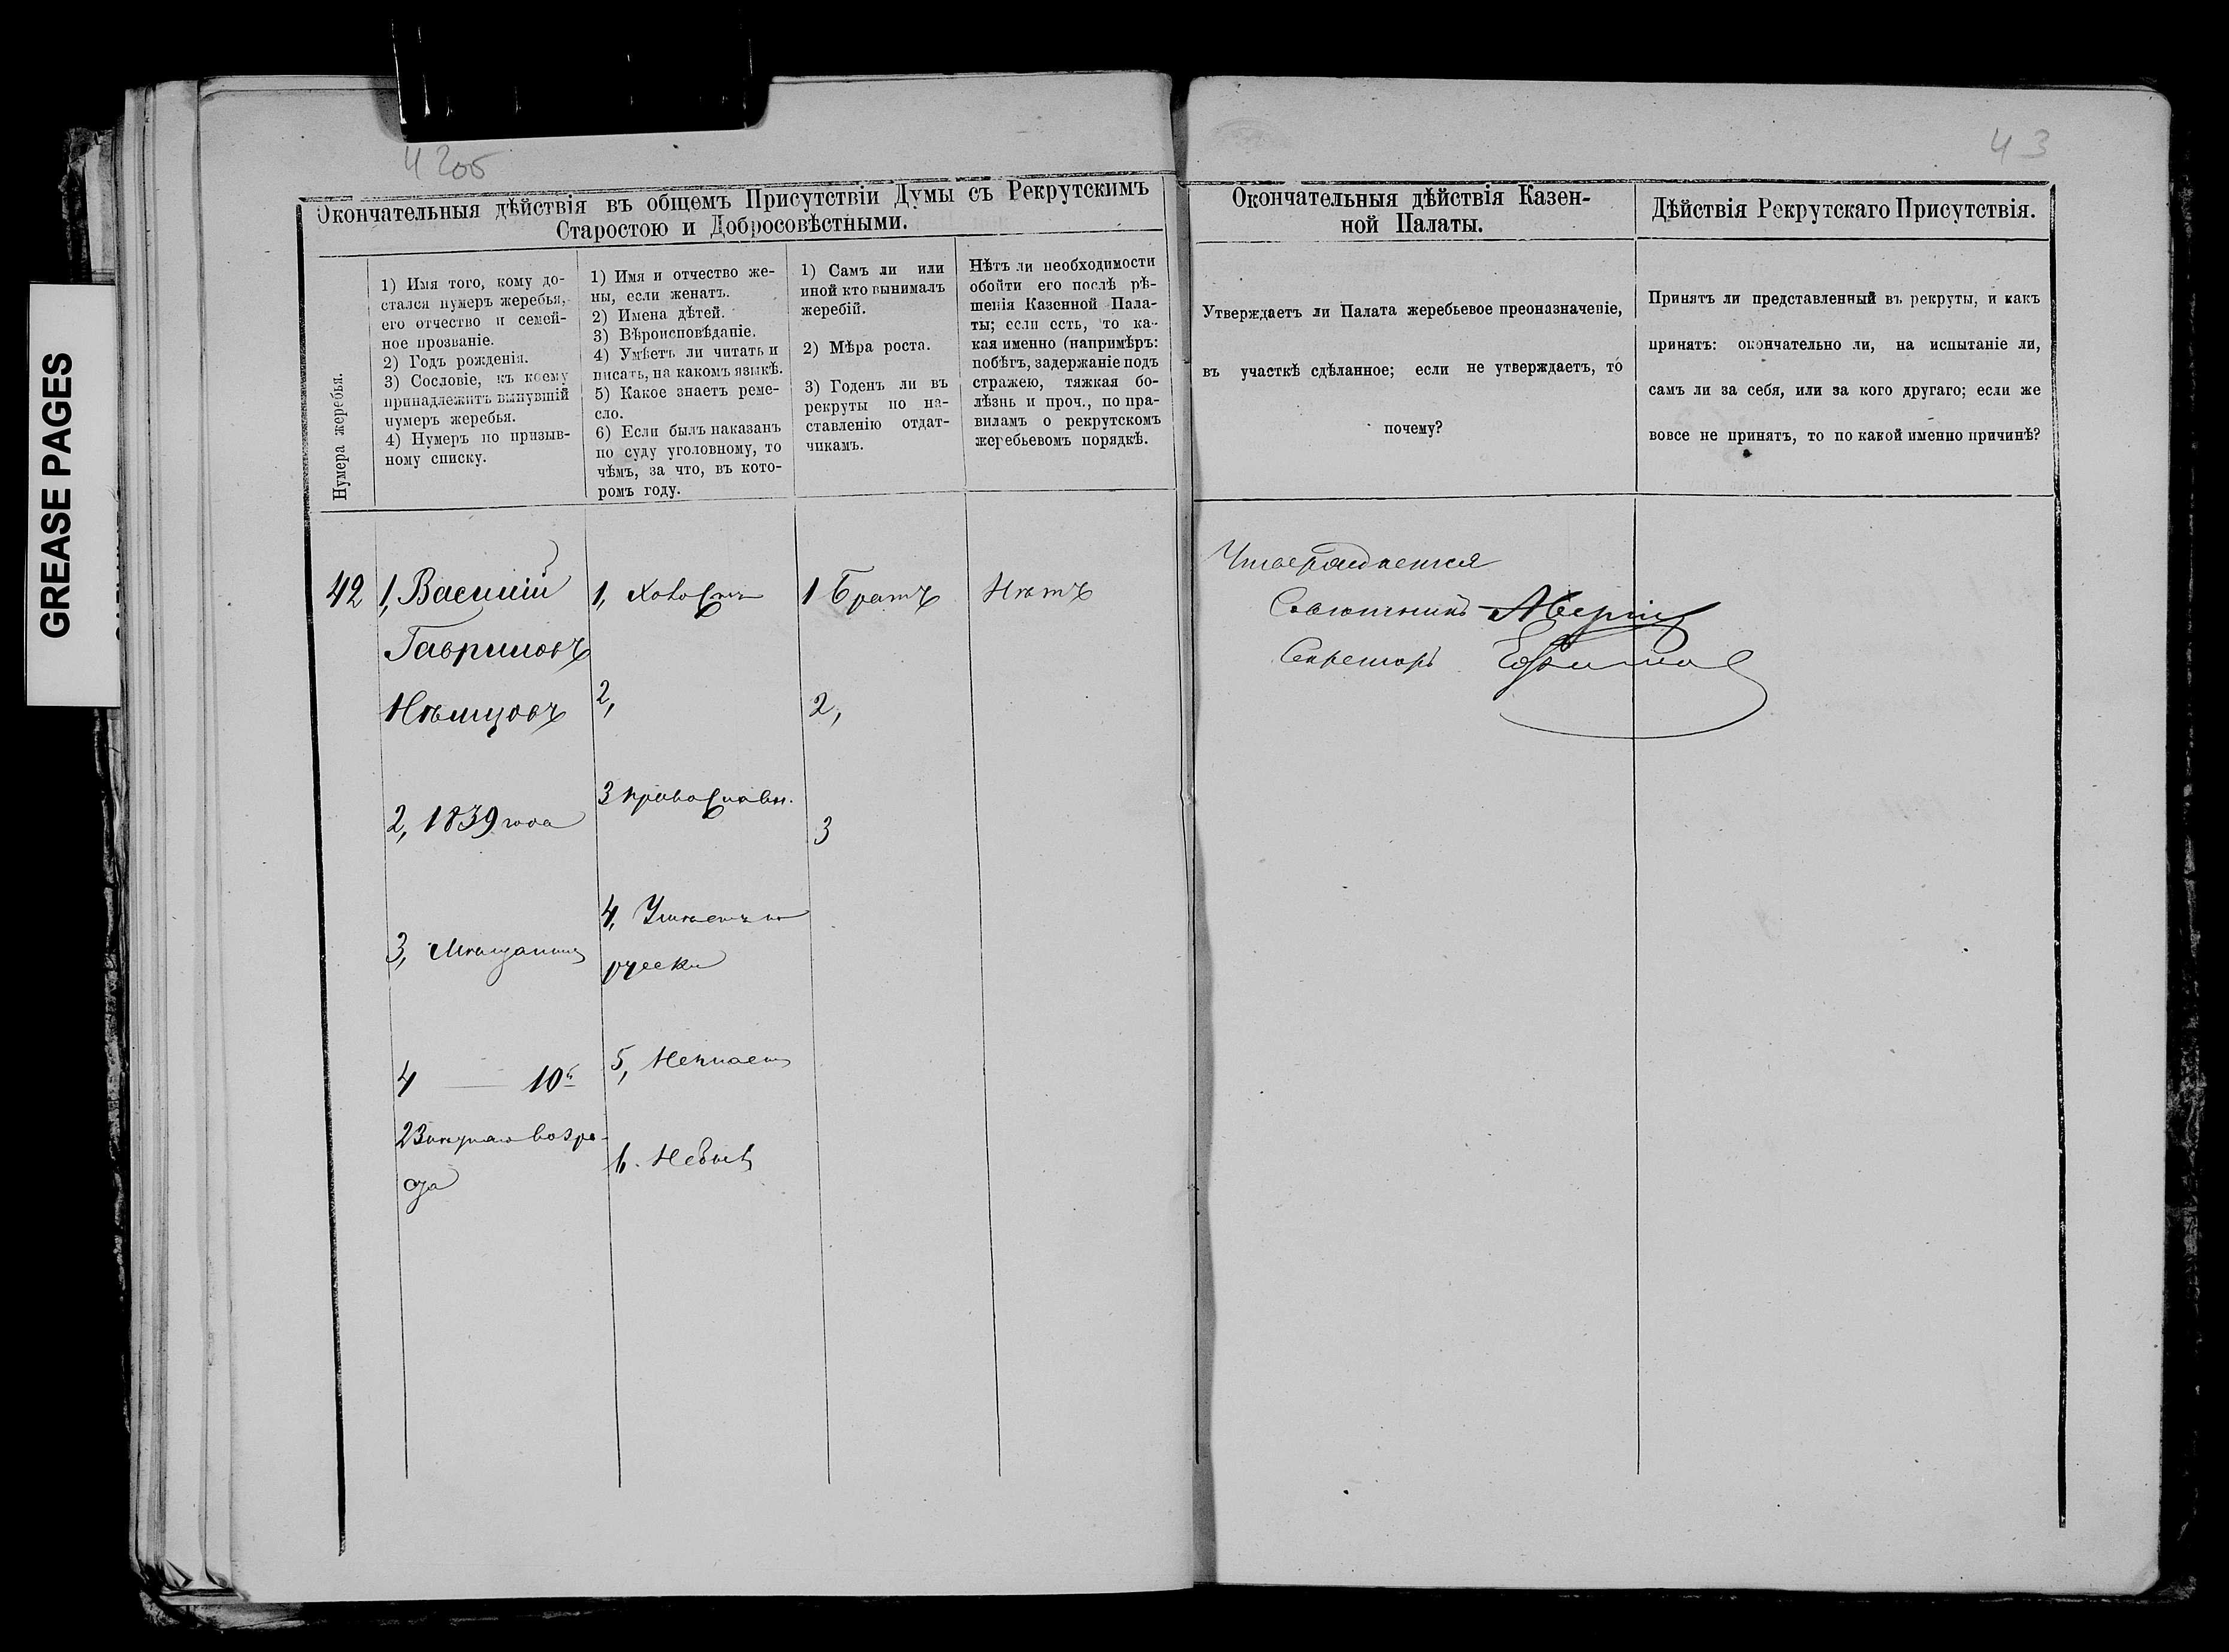 GREASE PAGES
42об
43
Окончательныя дѣйствія въ общемъ Присутствіи Думы съ Рекрутскимъ
Старостою и Добросовѣстными.
Нумера жеребья.
1) Имя того, кому до-
стался нумеръ жеребья,
его отчество и семей-
ное прозваніе.
2) Годъ рожденія.
3) Сословіе, къ коему
принадлежитъ вынувшій
нумеръ жеребья.
4) Нумеръ по призыв-
ному списку.
1) Имя и отчество же-
ны, если женатъ.
2) Имена дѣтей.
3) Вѣроисповѣданіе.
4) Умѣетъ ли читать и
писать, на какомъ языкѣ.
5) Какое знаетъ реме-
сло.
6) Если былъ наказанъ
по суду уголовному, то
чѣмъ, за что, въ кото-
ромъ году.
1) Самъ ли или
иной кто вынималъ
жеребій.
2) Мѣра роста.
3) Годенъ ли въ
рекруты по на-
ставленію отдат-
чикамъ.
Нѣтъ ли необходимости
обойти его послѣ рѣ-
шенія Казенной Пала-
ты; если есть, то ка-
кая именно (напримѣръ:
побѣгъ, задержаніе подъ
стражею, тяжкая бо-
лѣзнь и проч., по пра-
виламъ о рекрутскомъ
жеребьевомъ порядкѣ.
42
1, Василій
Гавриловъ
Нѣмцовъ
2, 1839 года
3, Мѣщанинъ
4 — 10й
2
да
1, Холостъ
2,
3 православн.
4, Умѣетъ по
русски
5, Незнаетъ
6. Небылъ
1 Братъ
2,
3
Нѣтъ
Окончательныя дѣйствія Казен-
ной Палаты.
Утверждаетъ ли Палата жеребьевое преоназначеніе,
въ участкѣ сдѣланное; если не утверждаетъ, то
почему?
Утверждается
Совѣтникъ
Секретарь
Дѣйствія Рекрутскаго Присутствія.
Принятъ ли представленный въ рекруты, и какъ
принятъ: окончательно ли, на испытаніе ли,
самъ ли за себя, или за кого другаго; если же
вовсе не принятъ, то по какой именно причинѣ?